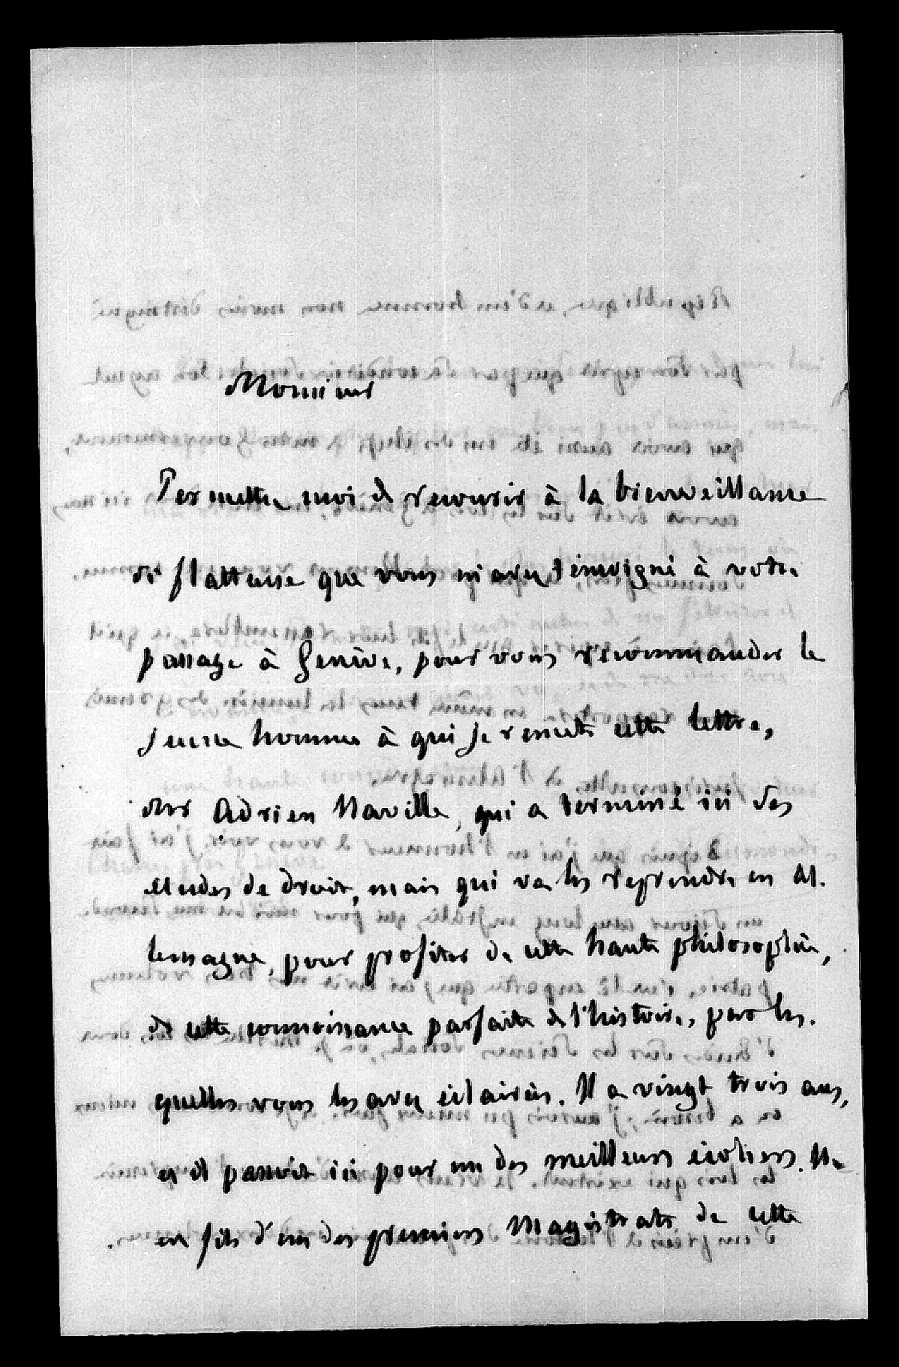 Monsieur
Permettez moi de recourir à la bienveillance
si flatteuse que vous m'avez témoigné à votre
passage à Genève, pour vous recommander le
jeune homme à qui je remets cette lettre,
Mr Adrien Naville, qui a terminé ici ses
études de droit, mais qui va les reprendre en Al.
lemagne, pour profiter de cette haute philosophie,
de cette connoissance parfaite de l'histoire, par les.
quelles vous les avez éclairées. Il a vingt trois ans,
et il passoit ici pour un des meilleurs écoliers. Il
est fils d'un des premiers Magistrats de cette